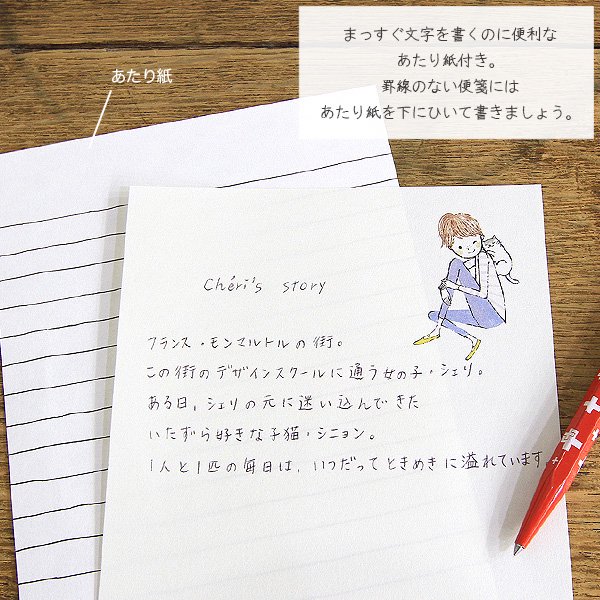 まっすぐ文字を書くのに便利な
あたり紙付き。
罫線のない便箋には
あたり紙を下にひいて書きましょう。
あたり紙
Chéri's story
フランス・モンマルトルの街。
この街のデザインスクールに通う女の子・シェリ。
ある日、シェリの元に迷い込んできた
いたずら好きな子猫・シニヨン。
1人と1匹の毎日は、いつだってときめきに溢れています。